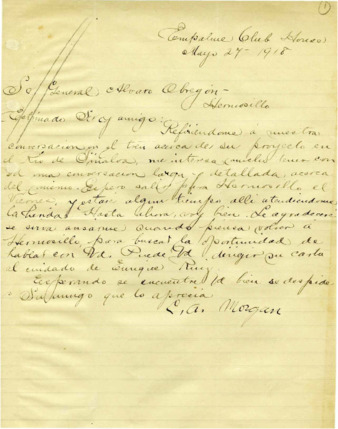 1
Empalme Club Horeso
Mayo 27- 1918
Sr General, Alvaro Obregón-
Hermosillo
Estimado Sr y amigo:-
Refiriéndome á nuestra
conversacion en el tren acerca de su proyecto en
el Rio de Sinaloa, me interesa mucho tener con
Vd una conversacion larga y detallada, acerca
del mismo. Espero salir para Hermosillo, el
Jueves, y estar algun tiempo allí atendiendome
la herida. Hasta ahora, voy bien. Le agradeceré
se sirva avisarme cuando piensa volver á
Hermosillo, para buscar la oportunidad de
hablar con Vd. Puede Vd. dirigir su carta
al cuidado de Enrique Ruiz
Esperando se encuentre Vd bien se despide
Su amigo que lo aprecia
Morgan